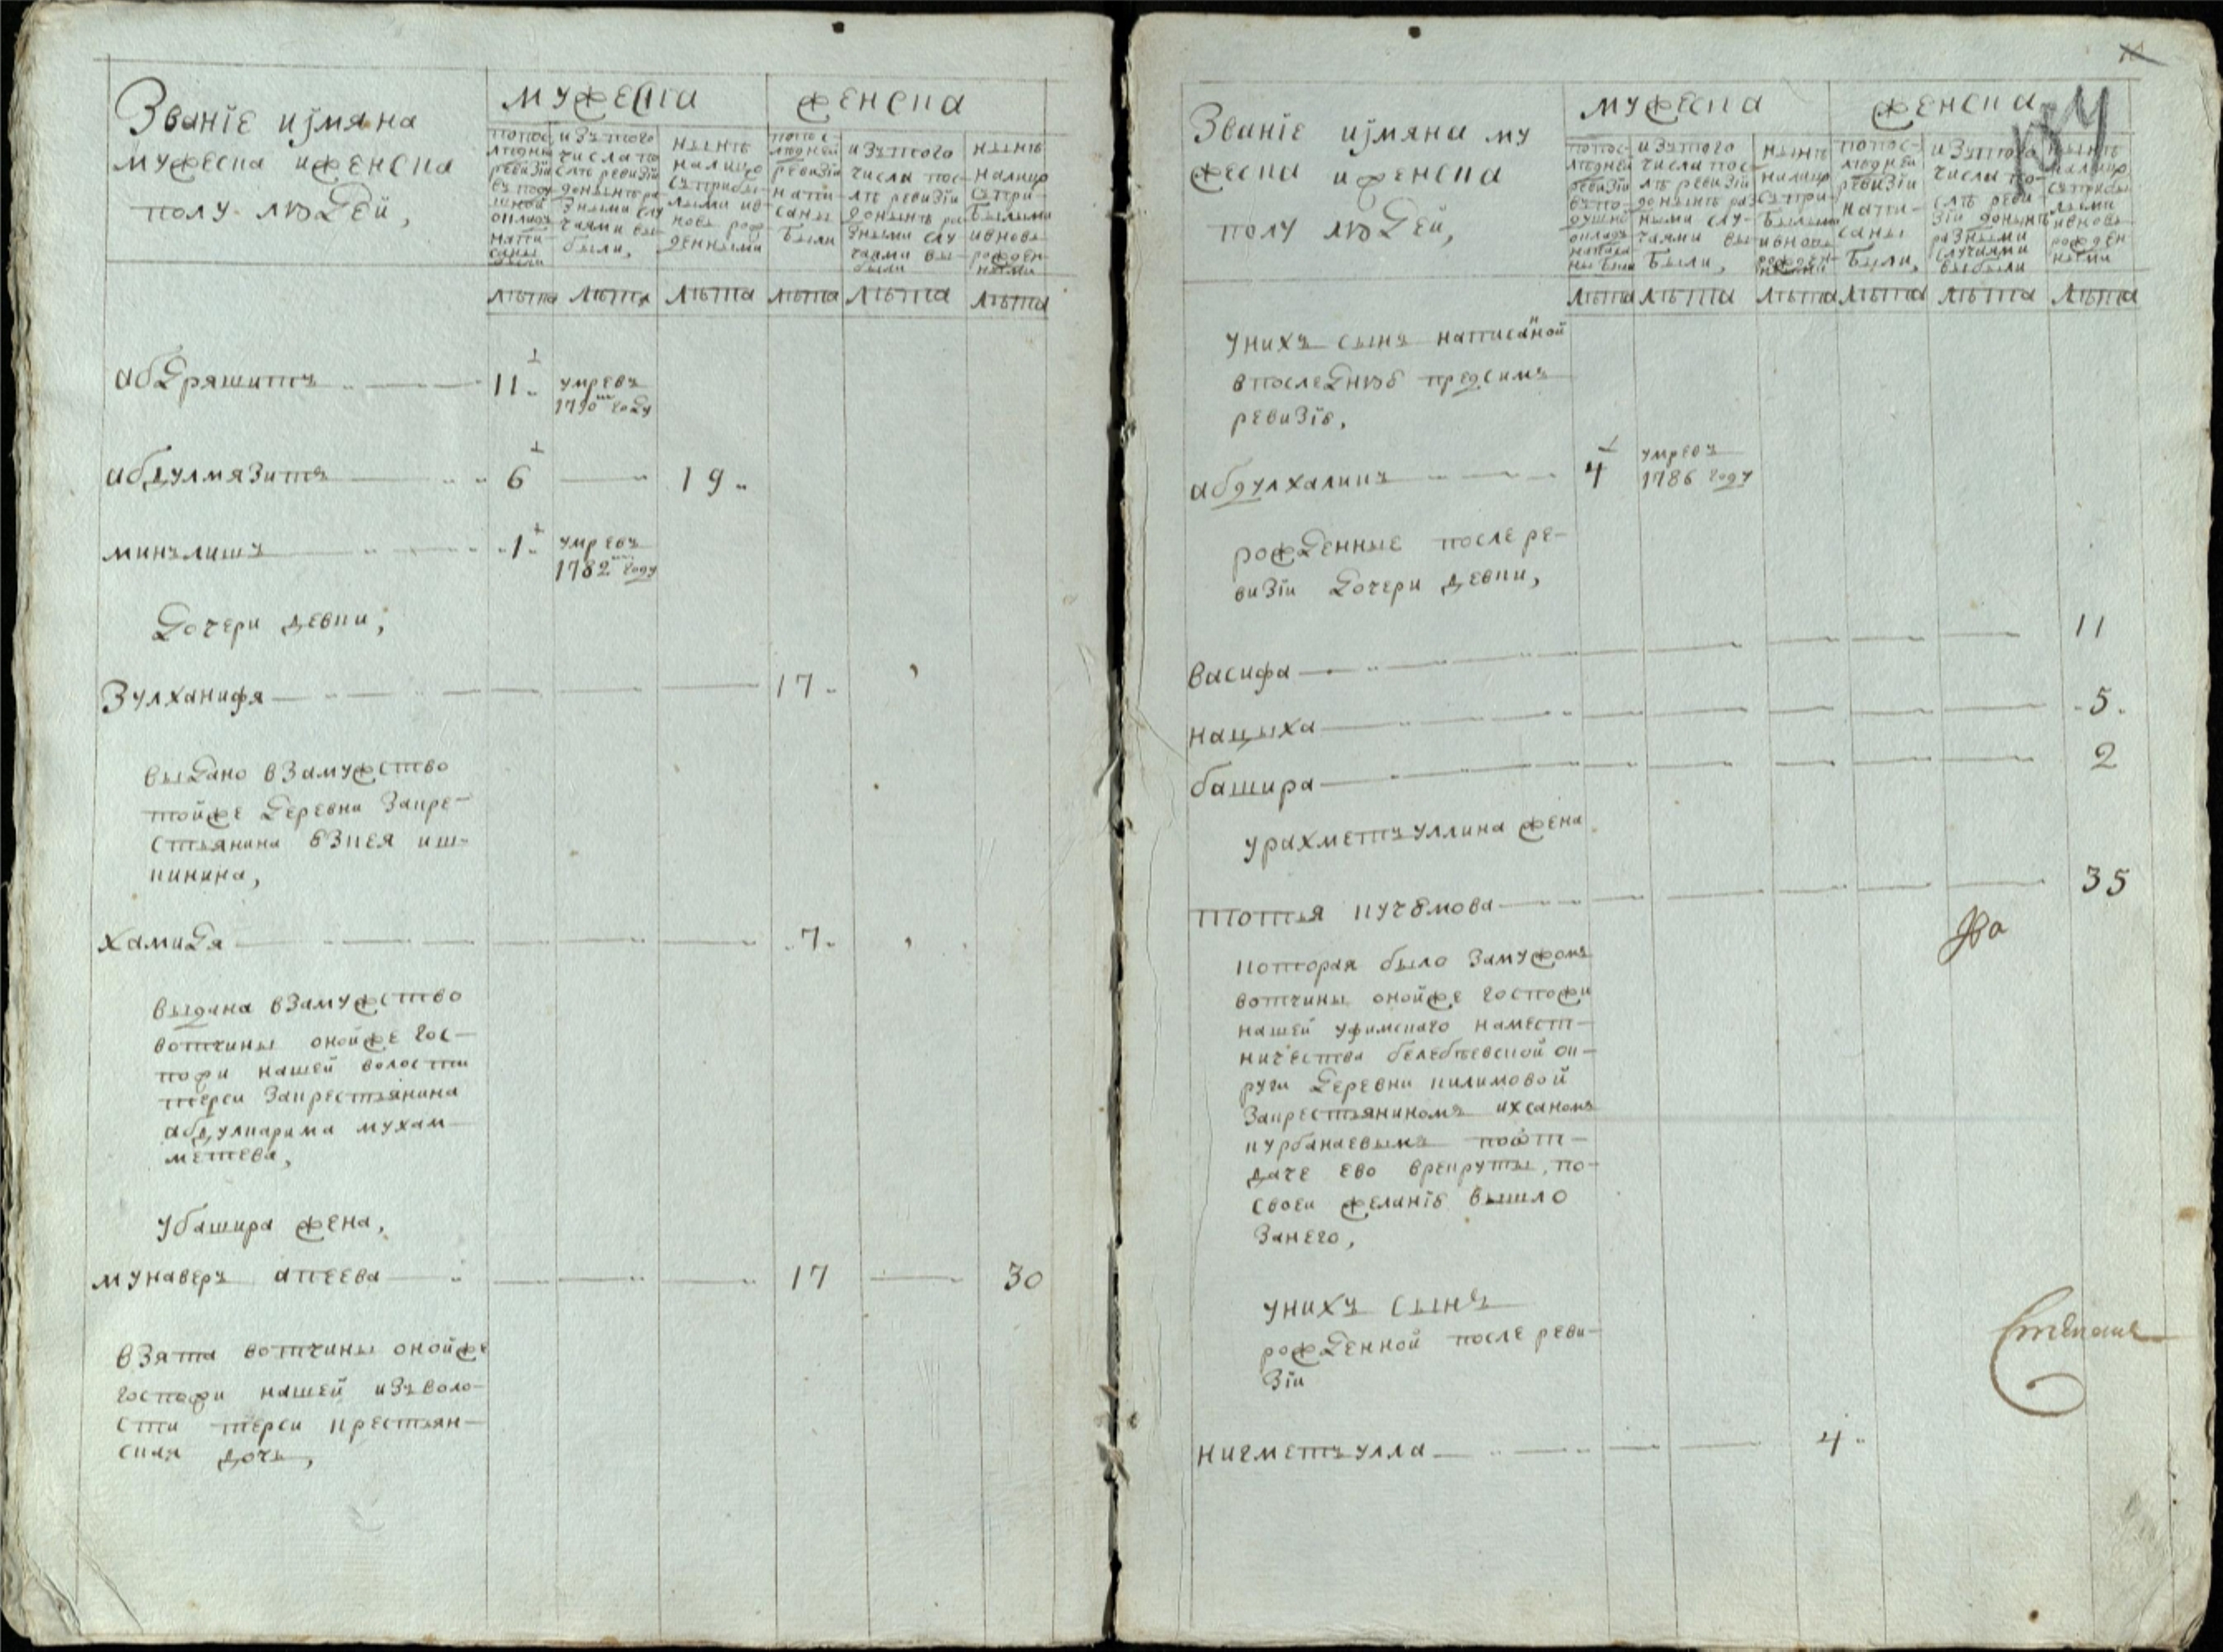 Званіе иjмяна
мужеска иженска
полу людей,
мужеска
женска
попос-
ледней
ревизіи
въ поду-
шной
окладъ
напи-
саны
были
изътого
числа по
слѣ ревизіи
донынѣ ра
зными слу
чаями вы
были,
нынѣ
налицо
съприбы-
лыми ив-
новь рож
денными
попос-
ледней
ревизіи
напи-
саны
были
изътого
числа пос-
лѣ ревизіи
донынѣ ра
зными слу
чаями вы-
были
нынѣ
налицо
съпри-
былыми
ивновь
рожден-
ными
лѣта лѣта лѣта лѣта лѣта лѣта
абдряшитъ 11 умревъ
1790 году
абдулмязитъ 6 19
минълишъ 1 умревъ
1782 году
дочери девки,
Зулханифя 17
выдано взамужство
тойже деревни Закре-
стьянина бзкея иш-
кинина,
хамидя 7
выдана взамужство
вотчины онойже гос-
пожи нашей волости
терси Закрестьянина
абдулкарима мухам-
метева,
убашира жена,
мунаверъ апеева 17 30
взята вотчины онойже
госпожи нашей изъволо-
сти терси крестьян-
ская дочь,
Званіе иjмяна му
жеска иженска
полу людей,
мужеска
женска
попос-
ледней
ревизіи
въ по-
душно
окладъ
написа
ны были
изътого
числа пос-
лѣ ревизіи
донынѣ раз
ными слу-
чаями вы-
были,
нынѣ
налицо
съпри-
былыми
ивновь
рожден-
ными
попос-
ледней
ревизіи
напи-
саны
были,
изътого
числа по-
слѣ реви-
зіи донынѣ
разными
случаями
выбыли
нынѣ
налицо
съприбы
лыми
ивновь
рожден
ными
лѣта лѣта лѣта лѣта лѣта лѣта
унихъ сынъ написанной
впоследнюю предсимъ
ревизію,
абдулхаликъ 4 умревъ
1786 году
рожденные после ре-
визіи дочери девки,
васифа 11
нацыха 5
башира 2
урахметъуллина жена
тотья кучюмова 35
которая было замужомъ
вотчины онойже госпожи
нашей уфимскаго намест-
ничества белебѣевской ок-
руги деревни килимовой
Закрестьяниномъ ихсаномъ
курбанаевымъ поот-
даче ево врекруты, по-
своеи желанію вышло
Занего,
унихъ сынъ
рожденной после реви-
зіи
нигметъулла 4